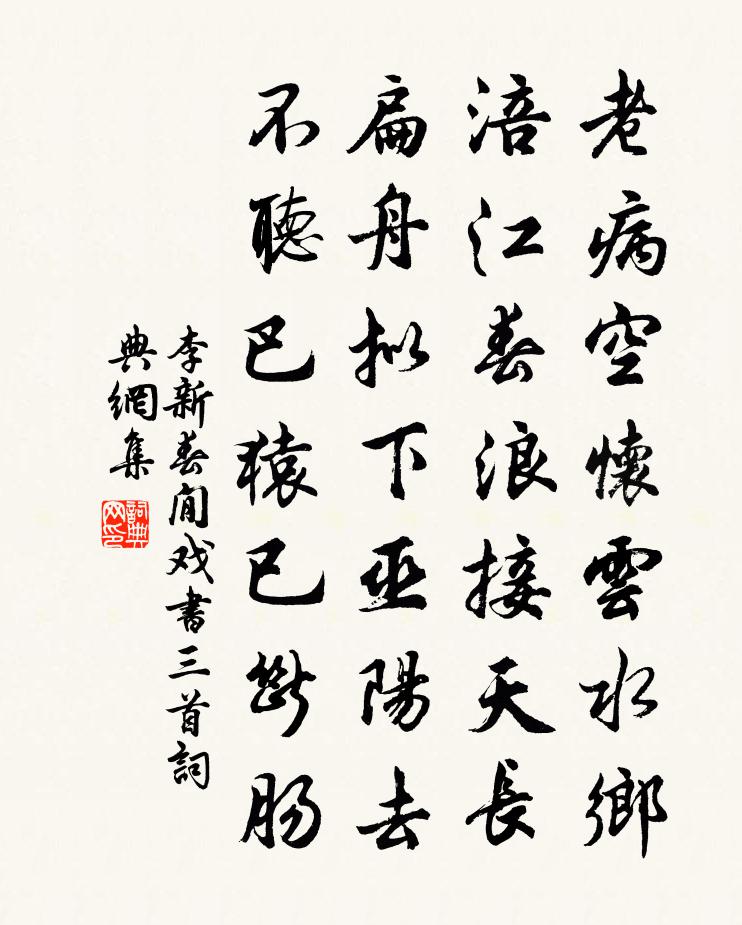 老病空懷雲水鄉
涪江春浪接天長
扁舟拟下巫陽去
不聽巴猿已斷肠
李新春閒戏書三首詞
典網集
詞典
网印